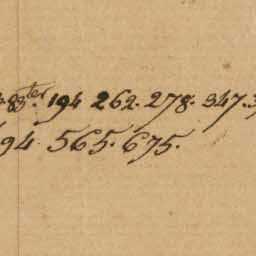 83ter. 194 262. 278. 347.
94. 565. 675.